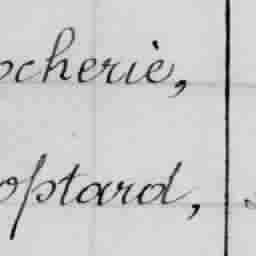 ocherie,
optard,